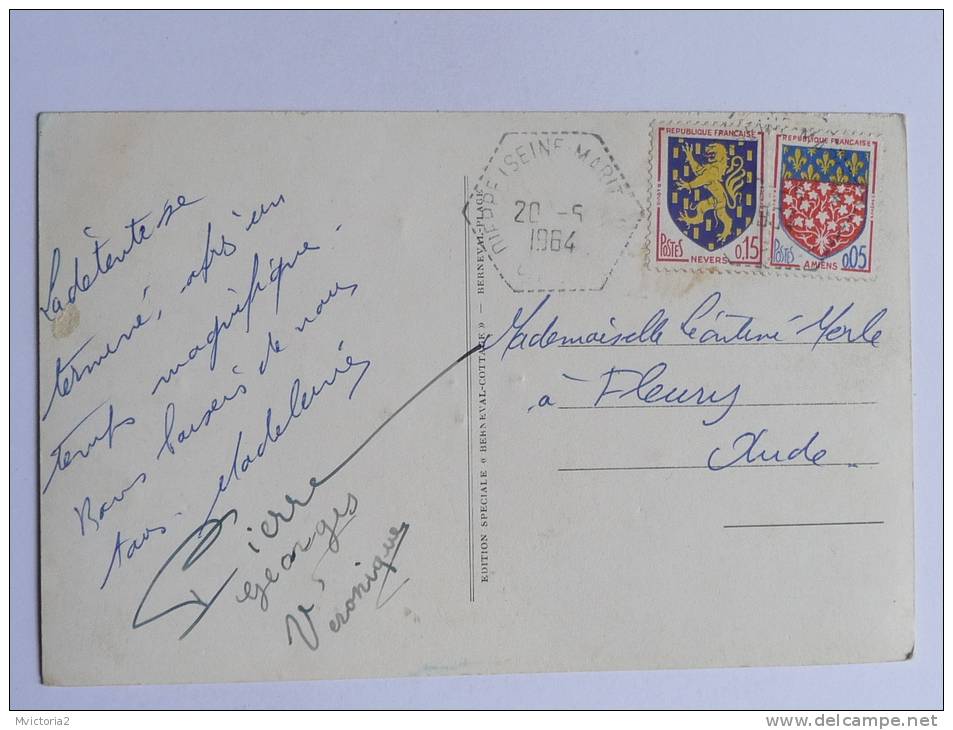 La détente se
termine, après un
temps magnifique.
Bons baisers de nous
tous. Madeleine
Pierre
Georges
Véronique
EDITION SPECIALE « BERNEVAL-COTTAGE » — BERNEVAL-PLAGE
DIEPPE (SEINE-MARIT
20 -5
1964
REPUBLIQUE FRANÇAISE
POSTES
0,15
NEVERS
REPUBLIQUE FRANÇAISE
POSTES
0,05
AMIENS
Mademoiselle Léontine Merle
à Fleury
Aude
Mvictoria2
www.delcampe.net